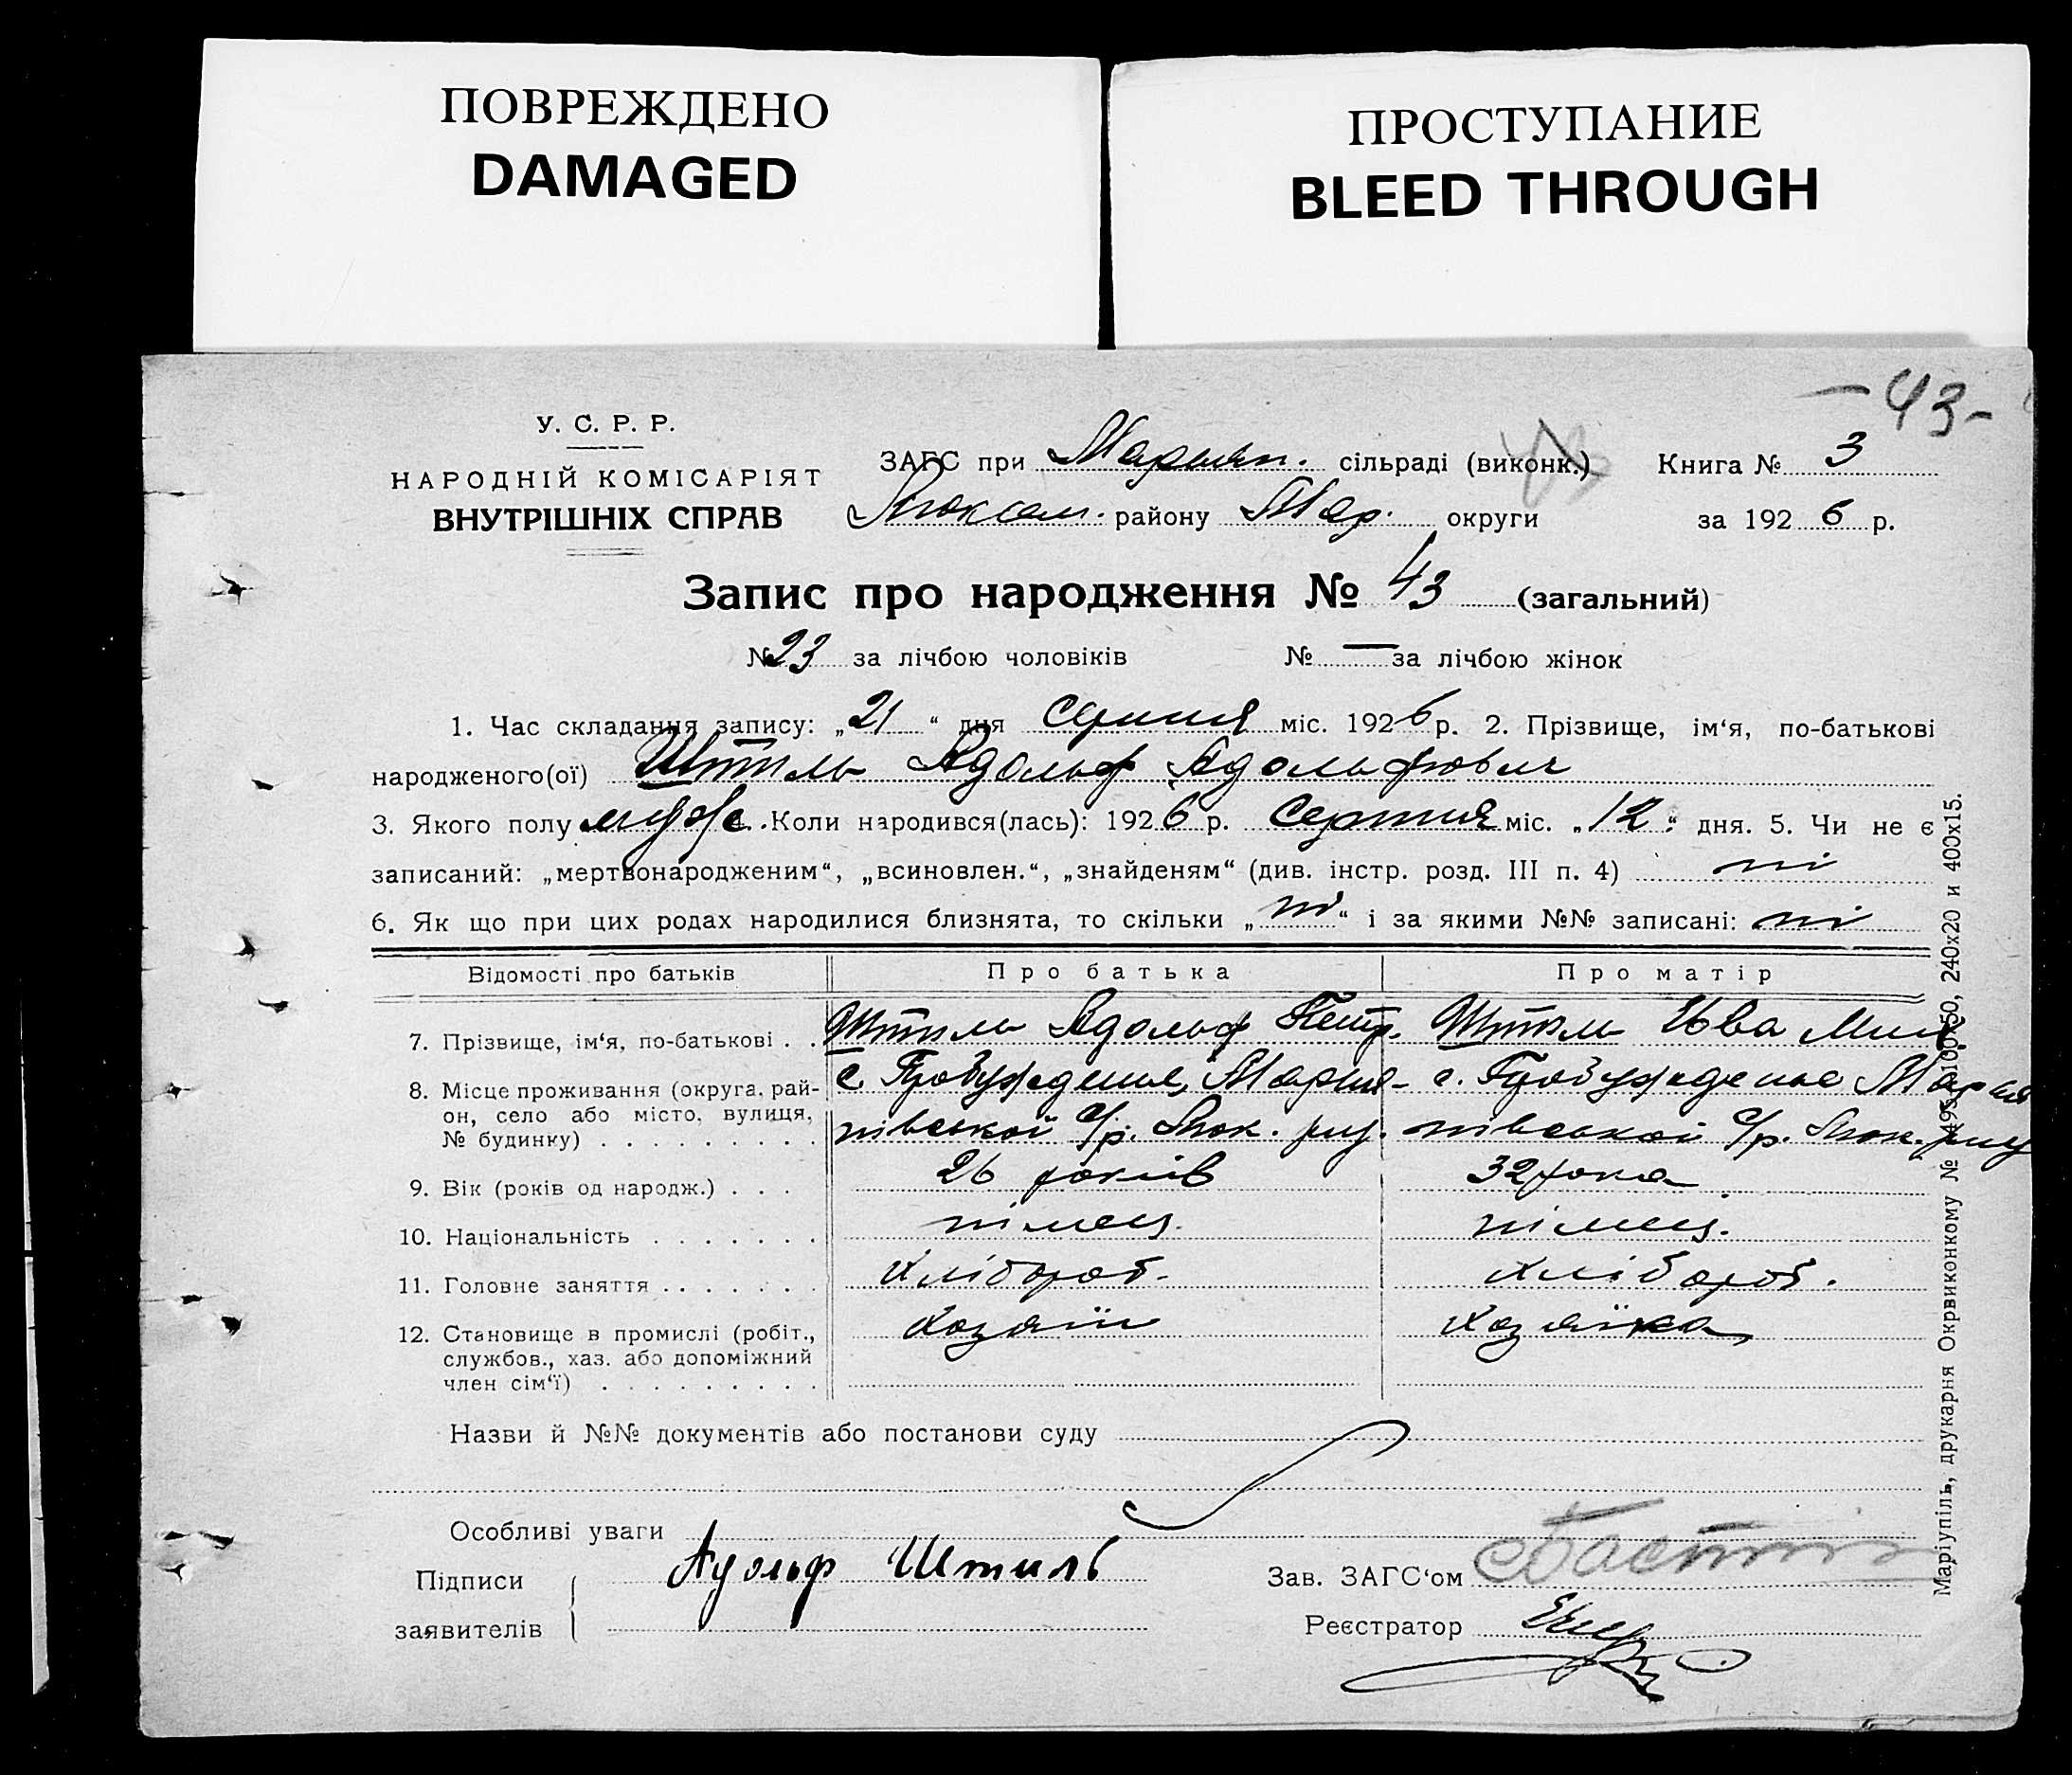 ПОВРЕЖДЕНО
DAMAGED
ПРОСТУПАНИЕ
BLEED THROUGH
-43-
У. С. Р. Р.
НАРОДНІЙ КОМІСАРІЯТ
ВНУТРІШНІХ СПРАВ
ЗАГС при Марьян. сільраді (виконк.) Книга № 3
Люксем. району Мар. округи за 1926 р.
Запис про народження № 43 (загальний)
№ 23 за лічбою чоловіків № — за лічбою жінок
1. Час складання запису: „21“ дня серпня міс. 1926 р. 2. Прізвище, ім‘я, по-батькові
народженого(ої) Штиль Адольф Адольфович
3. Якого полу муж. 4. Коли народився(лась): 1926 р. Серпня міс. „12“ дня. 5. Чи не є
записаний: „мертвонародженим“, „всиновлен.“, „знайденям“ (див. інстр. розд. III п. 4) ні
6. Як що при цих родах народилися близнята, то скільки „ні“ і за якими №№ записані: ні
Відомості про батьків Про батька Про матір
7. Прізвище, ім‘я, по-батькові . . Штиль Адольф Петр. Штиль Ева Мих.
8. Місце проживання (округа, рай-
он, село або місто, вулиця,
№ будинку) . . . . . . . . .
с. Пробуждение, Марья-
нівської с/р. Люк. рну.
с. Пробуждение Марья
нівської с/р. Люк. рну
9. Вік (років од народж.) . . . 26 років 32 рока
10. Національність . . . . . . . німец. німец.
11. Головне заняття . . . . . . . хлібороб. хлібороб.
12. Становище в промислі (робіт.,
службов., хаз. або допоміжний
член сім‘ї) . . . . . . . . .
хозяїн хозяїка
Назви й №№ документів або постанови суду
Особливі уваги
Підписи
заявителів
Адольф Штиль
Зав. ЗАГС‘ом
Реєстратор
Маріупіль, друкарня Окрвиконкому №
240х20 и 400х15.